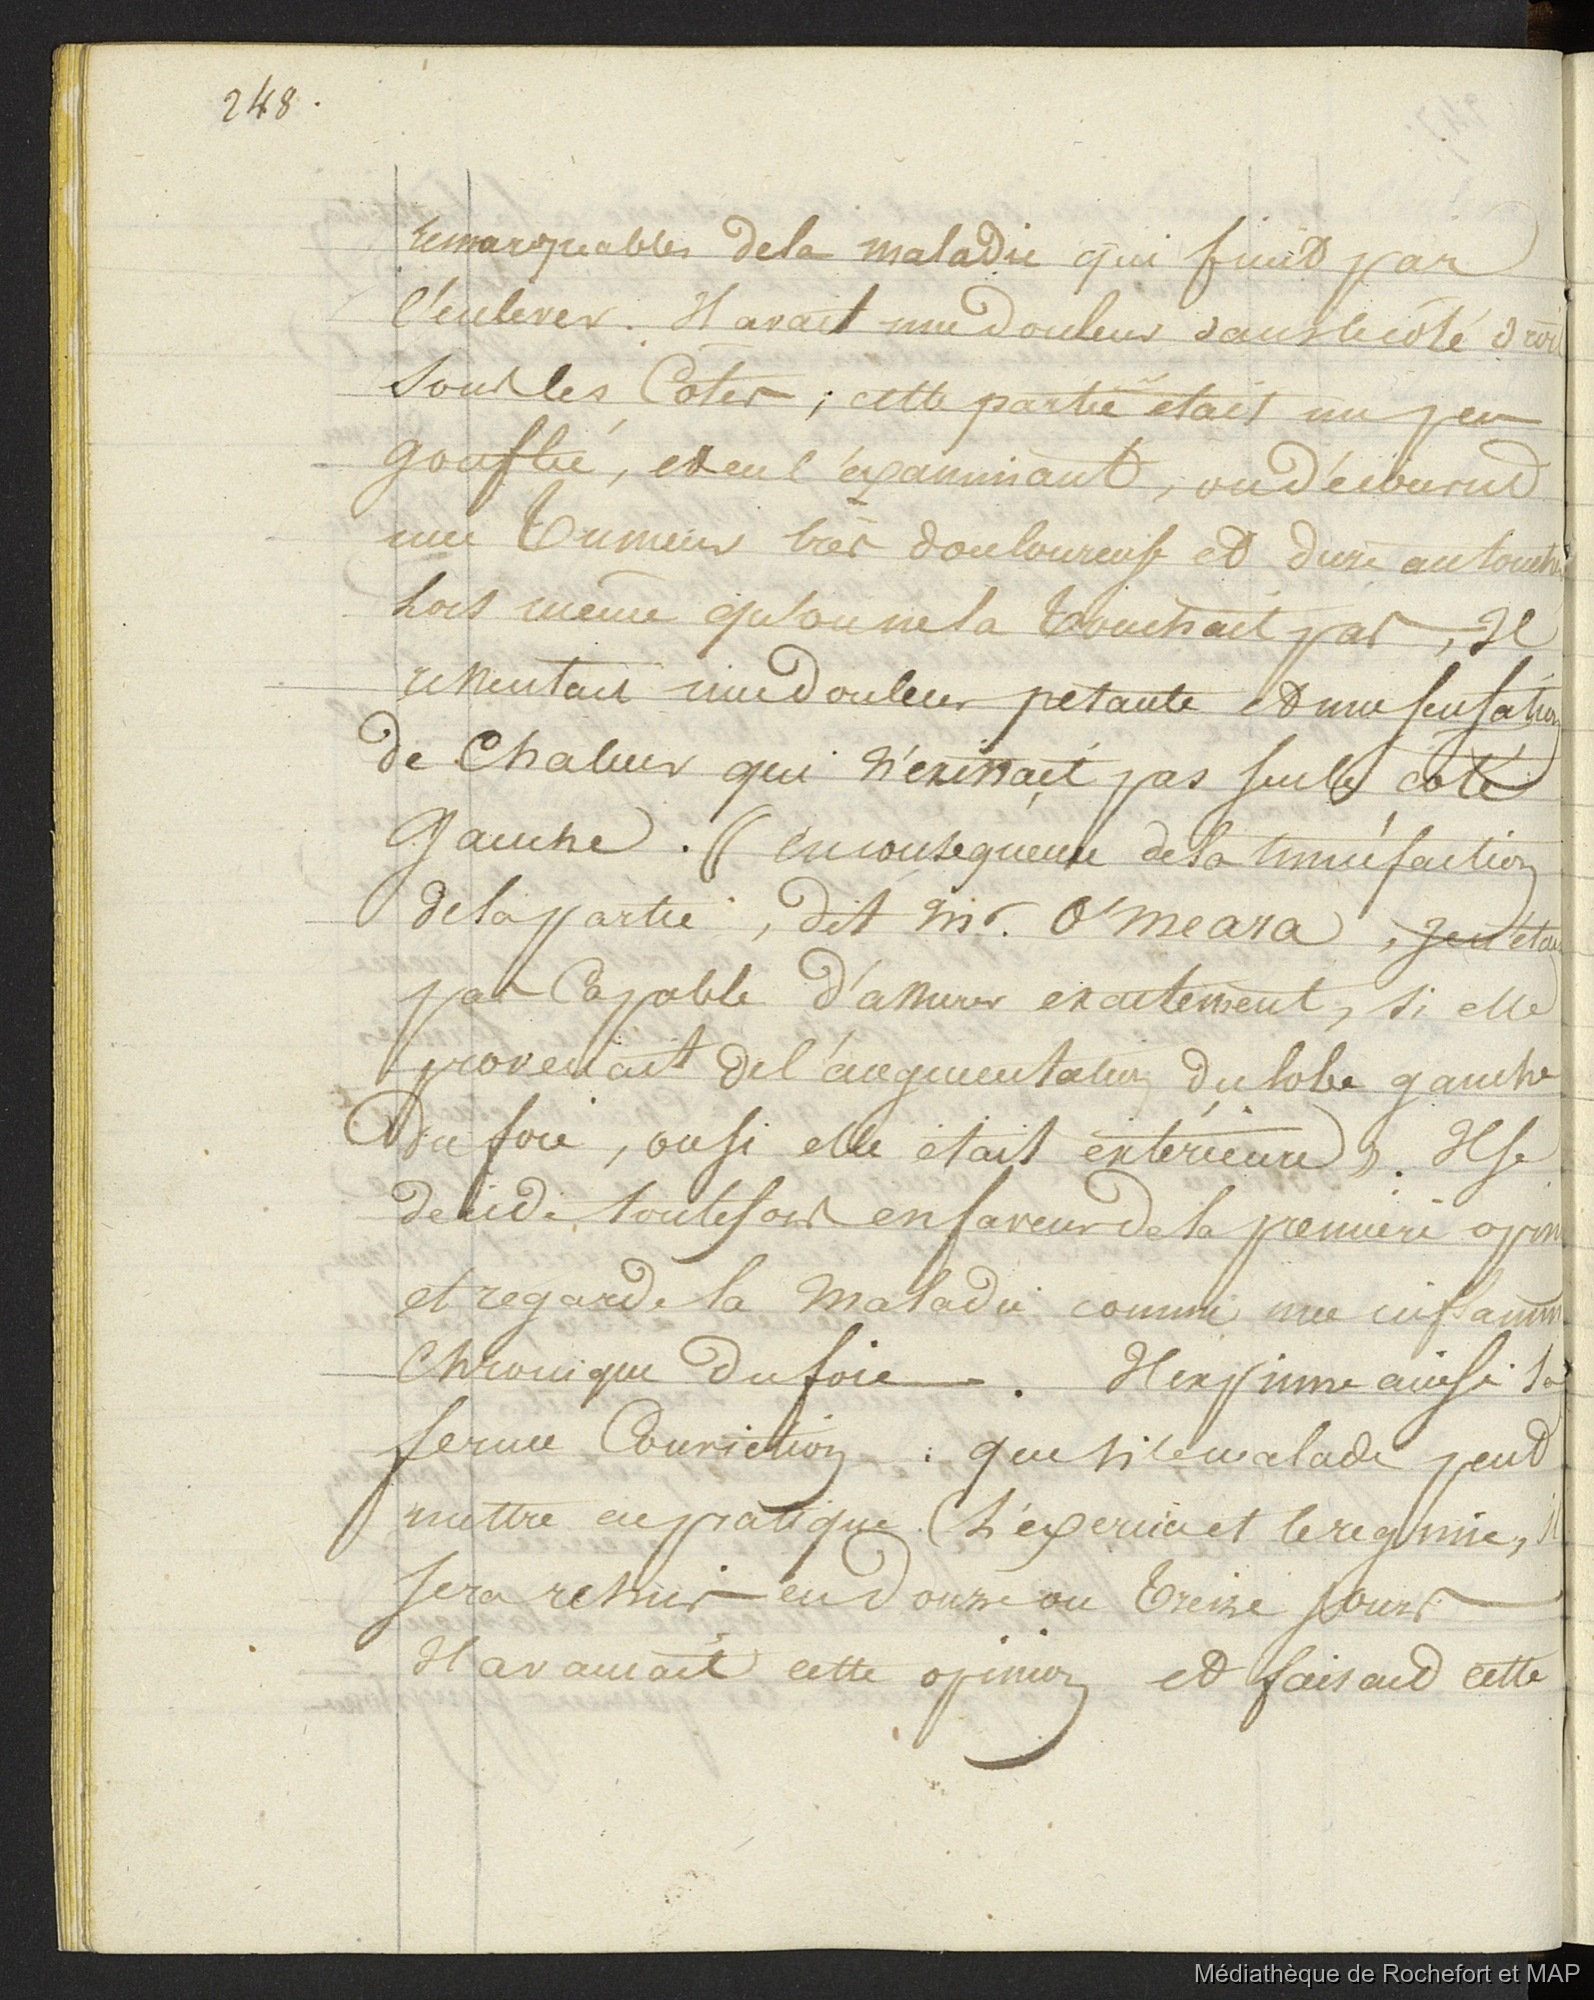 248.
remarquables de la maladie qui finit par
l'enlever. Il avait une douleur dans le côté droit
sous les Cotes ; cette partie était un peu
gonflée, et en l'examinant, on découvrit
une Tumeur très douloureuse et dure au toucher
Lors même qu'on ne la touchait pas, Il
ressentait une douleur pesante et une sensation
de Chaleur qui n'existait pas sur le côté
Gauche. (( en conséquence de la tuméfaction
de la partie, dit Mr. O'Meara, je n'étais
pas Capable d'assurer exactement, si elle
provenait de l'augmentation du lobe gauche
Du foie, ou si elle était extérieure )). Il se
décide toutefois en faveur de la première opin
et regarde la Maladie comme une inflamm
Chronique du foie. Il exprime ainsi sa
ferme Conviction : que si le malade peut
mettre en pratique l'exercice et le régime, il
sera remis en douze ou treize jours
Il avançait cette opinion et faisait cette
Médiathèque de Rochefort et MAP